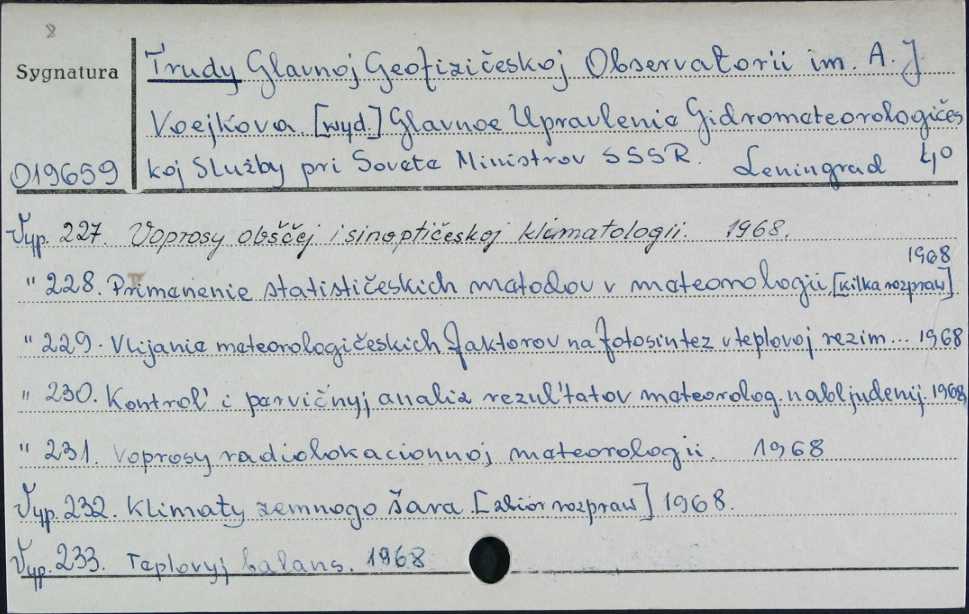 8
Sygnatura
Trudy Glavnoj Geofizičeskoj Observatorii im. A. J.
Voejkova. [wyd.] Glavnoe Upravlenie Gidrometeorologičes
019659 koj Služby pri Soveta Ministrov SSSR. Leningrad 4,0
Vyp. 227. Voprosy obščej i sinoptičeskoj klimatologii. 1968.
1968
" 228. Primenenie statističeskich metodov v meteorologii. [kilka rozpraw]
" 229. Vlijanie meteorologičeskich faktorov na fotosintez v teplovoj rezim... 1968
" 230. Kontrol' i pervičnyj analiz rezul'tatov meteorolog. nabljudenij. 1968
" 231. Voprosy radiolokacionnoj meteorologii. 1968
Vyp. 232. Klimaty zemnogo šara. [zbiór rozpraw] 1968.
Vyp. 233. Teplovyj balans. 1968